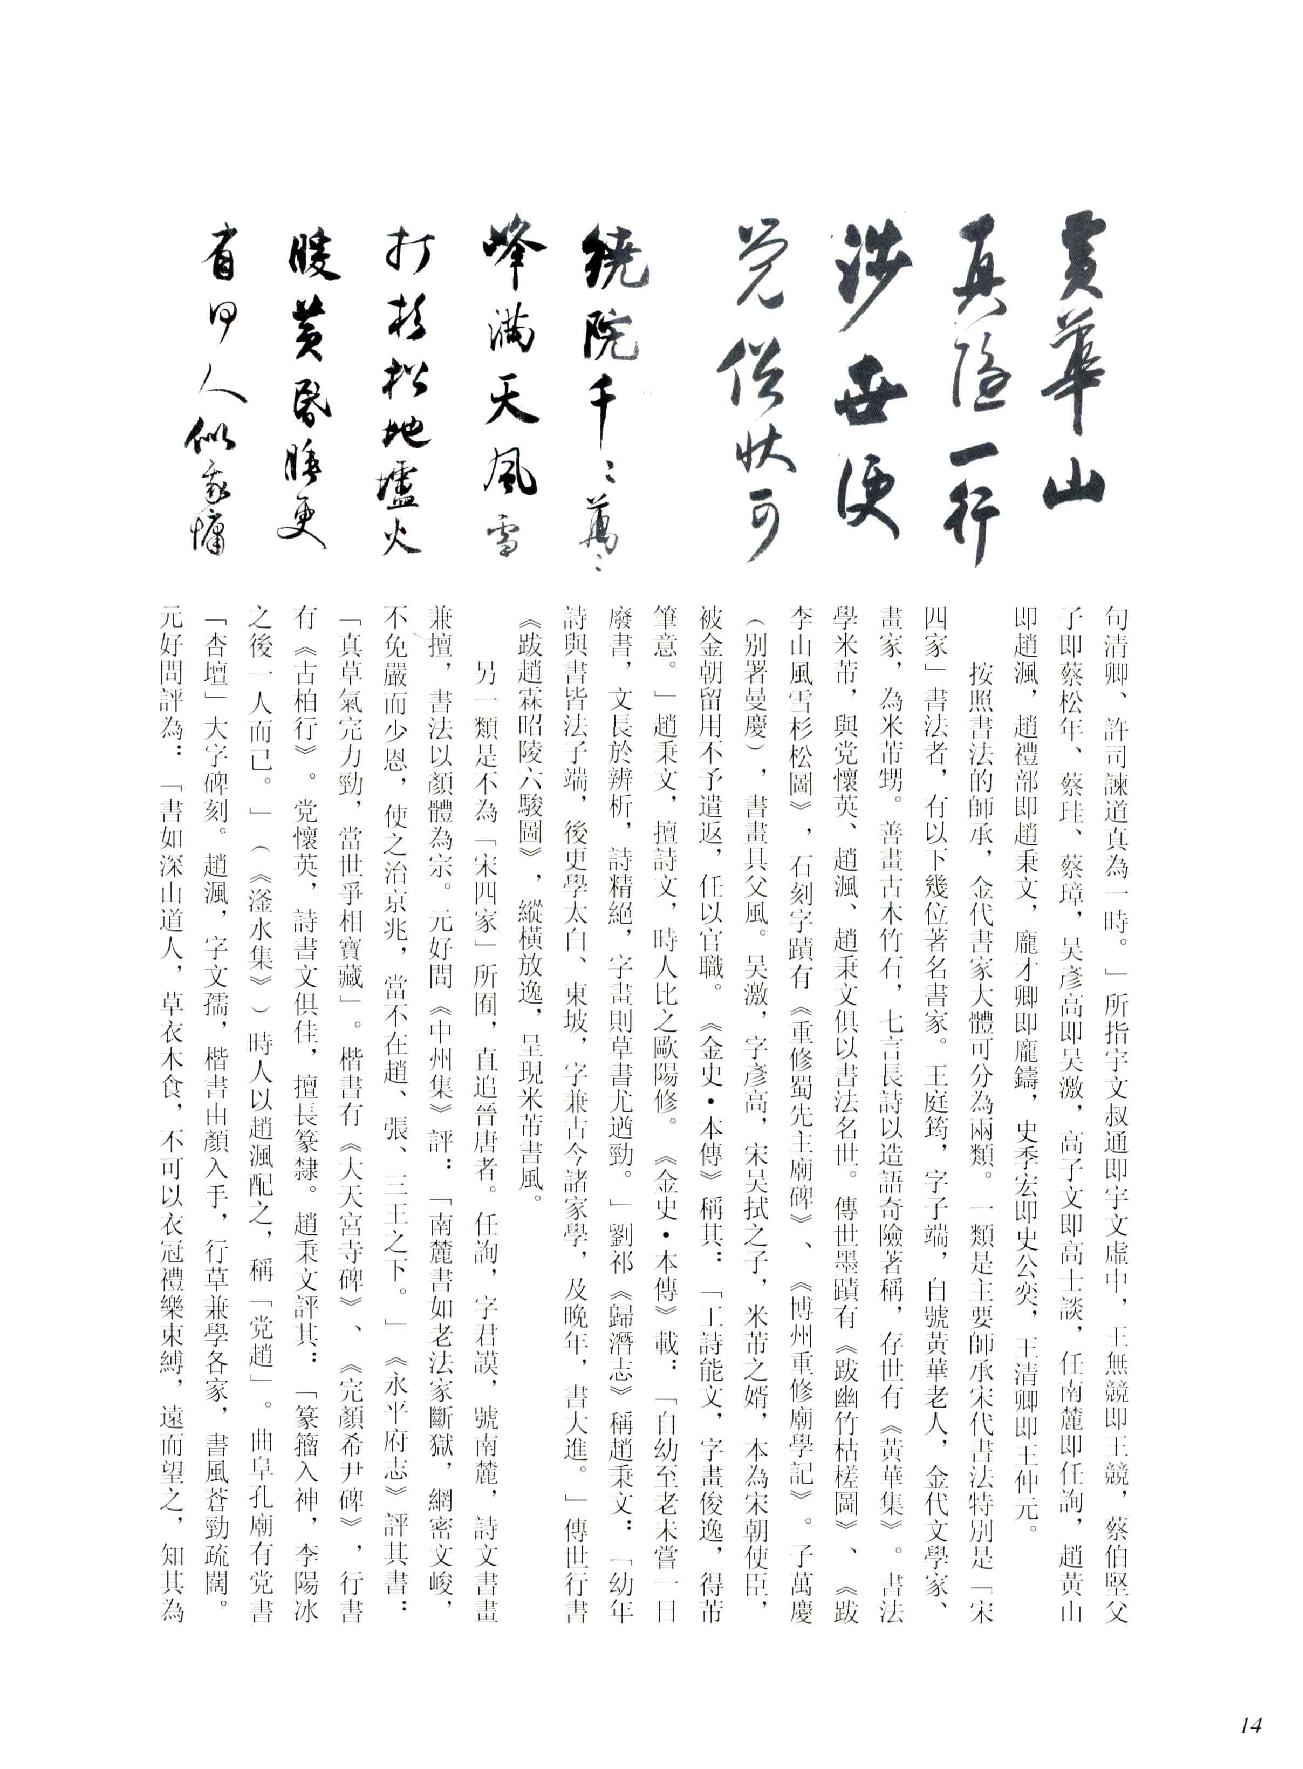 黃華山
真隱一行
涉世便
覺俗狀可
繞院千千萬萬
峰滿天風雪
打杉松地壚火
暖黃昏睡更
有何人似我慵
句清卿、許司諫道真為一時。」所指宇文叔通即宇文虛中，王無競即王競，蔡伯堅父
子即蔡松年、蔡珪、蔡璋，吴彥高即吴激，高子文即高士談，任南麓即任詢，趙黃山
即趙渢，趙禮部即趙秉文，龐才卿即龐鑄，史季宏即史公奕，王清卿即王仲元。
按照書法的師承，金代書家大體可分為兩類。一類是主要師承宋代書法特別是「宋
四家」書法者，有以下幾位著名書家。王庭筠，字子端，自號黃華老人，金代文學家、
畫家，為米芾甥。善畫古木竹石，七言長詩以造語奇險著稱，存世有《黃華集》。書法
學米芾，與党懷英、趙渢、趙秉文俱以書法名世。傳世墨蹟有《跋幽竹枯槎圖》、《跋
李山風雪杉松圖》，石刻字蹟有《重修蜀先主廟碑》、《博州重修廟學記》。子萬慶
（別署曼慶），書畫具父風。吴激，字彥高，宋吴拭之子，米芾之婿，本為宋朝使臣，
被金朝留用不予遣返，任以官職。《金史·本傳》稱其：「工詩能文，字畫俊逸，得芾
筆意。」趙秉文，擅詩文，時人比之歐陽修。《金史·本傳》載：「自幼至老未嘗一日
廢書，文長於辨析，詩精絕，字畫則草書尤遒勁。」劉祁《歸潛志》稱趙秉文：「幼年
詩與書皆法子端，後更學太白、東坡，字兼古今諸家學，及晚年，書大進。」傳世行書
《跋趙霖昭陵六駿圖》，縱橫放逸，呈現米芾書風。
另一類是不為「宋四家」所囿，直追晉唐者。任詢，字君謨，號南麓，詩文書畫
兼擅，書法以顏體為宗。元好問《中州集》評：「南麓書如老法家斷獄，網密文峻，
不免嚴而少恩，使之治京兆，當不在趙、張、三王之下。」《永平府志》評其書：
「真草氣完力勁，當世爭相寶藏」。楷書有《大天宮寺碑》、《完顏希尹碑》，行書
有《古柏行》。党懷英，詩書文俱佳，擅長篆隸。趙秉文評其：「篆籀入神，李陽冰
之後一人而已。」（《滏水集》）時人以趙渢配之，稱「党趙」。曲阜孔廟有党書
「杏壇」大字碑刻。趙渢，字文孺，楷書由顏入手，行草兼學各家，書風蒼勁疏闊。
元好問評為：「書如深山道人，草衣木食，不可以衣冠禮樂束縛，遠而望之，知其為
14